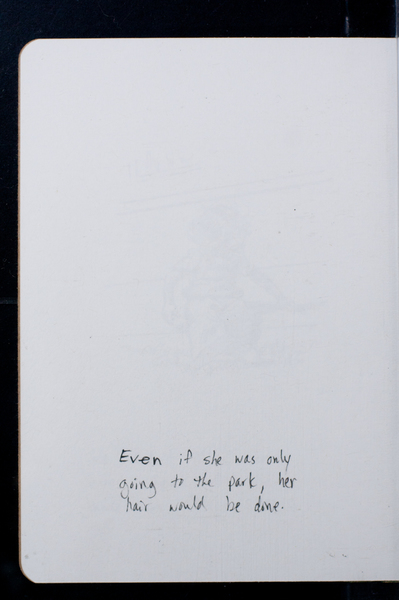 Even if she was only
going to the park, her
hair would be done.